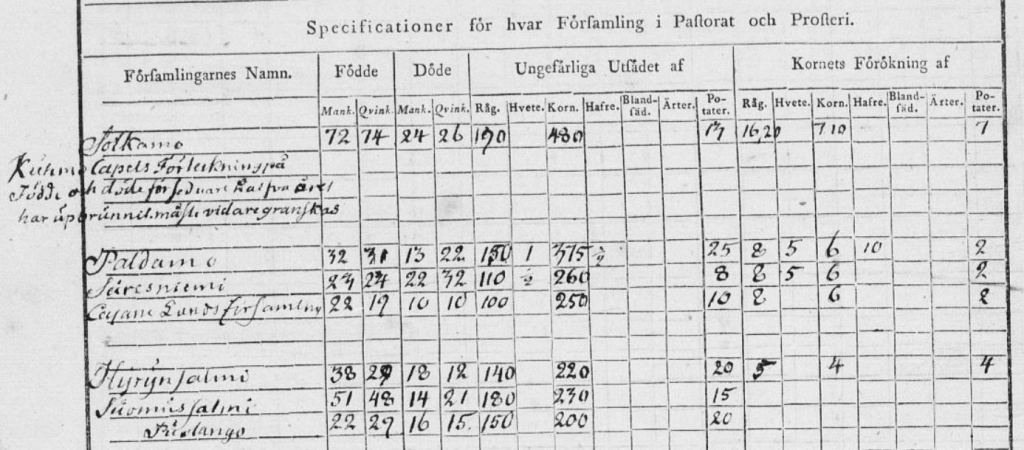 Specificationer för hvar Församling i Pastorat och Prosteri.
Församlingarnes Namn. Födde Döde Ungefärliga Utsädet af Kornets Förökning af
Mank. Qvink. Mank. Qvink. Råg. Hvete. Korn. Hafre. Bland-säd. Ärter. Po-tater. Råg. Hvete. Korn. Hafre. Bland-säd. Ärter. Po-tater.
Sotkamo 72 74 24 26 190 480 17 16,20 7 10 7
Kuhmo Capels Förteckning på
Födde och döde för sednare halfva året
har uprunnit måste vidare granskas
Paldamo 32 31 13 22 150 1 375 ½ 25 8 5 6 10 2
Säresniemi 23 24 22 32 110 ½ 260 8 8 5 6 2
Cajane Lands församlng 22 19 10 10 100 250 10 8 6 2
Hyrynsalmi 38 29 18 12 140 220 20 5 4 4
Suomussalmi 51 48 14 21 180 230 15
22 29 16 15. 150 200 20